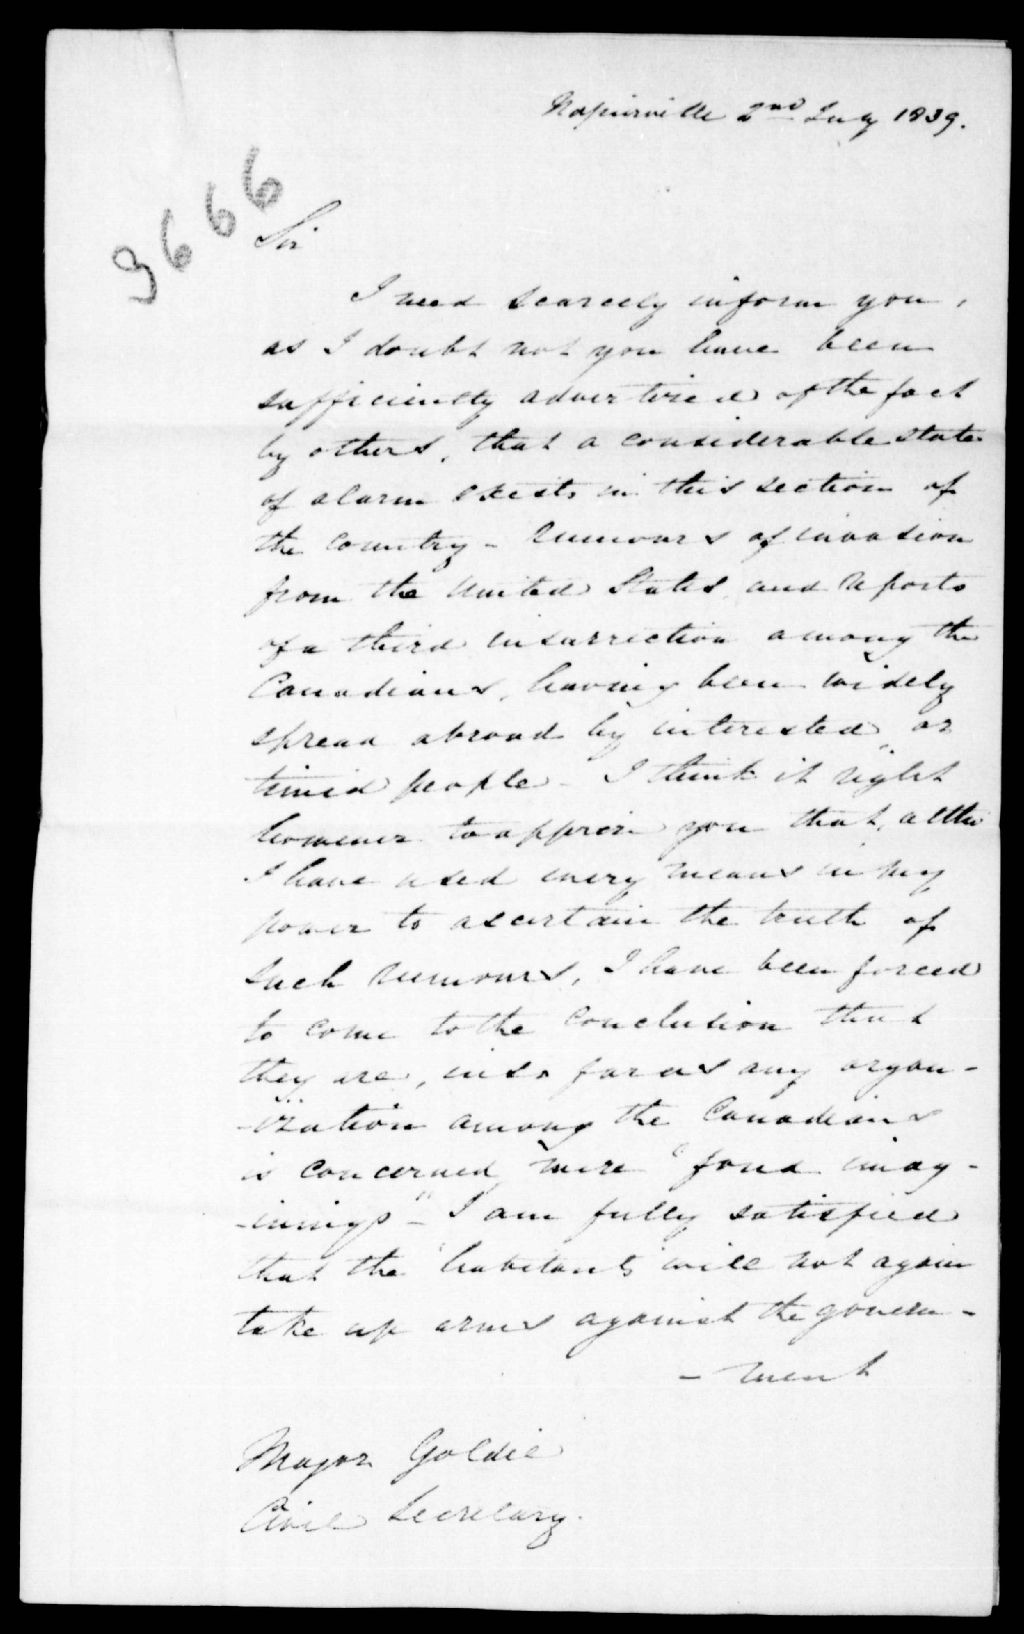 Napierville 2nd July 1839.
9666
Sir
I need scarcely inform you,
as I doubt not you have been
sufficiently advertised of the fact
by others, that a considerable state
of alarm exists in this section of
the country - rumours of invasion
from the United States, and reports
of a third insurrection among the
Canadians, having been widely
spread abroad by interested, or
timid people - I think it right
however to apprise you that, altho'
I have used every means in my
power to ascertain the truth of
such rumours, I have been forced
to come to the conclusion that
they are, in so far as any organ-
-ization among the Canadians
is concerned, mere "fond imag-
-inings" - I am fully satisfied
that the "habitants" will not again
take up arms against the govern-
- ment
Major Goldie
Civil Secretary.